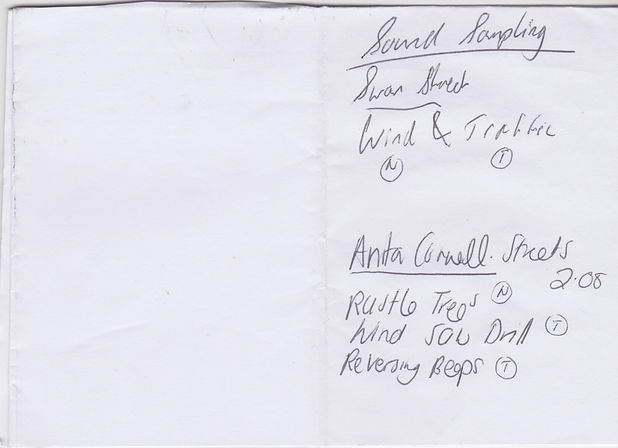 Sound Sampling
Swan Street
Wind & Traffic
N T
Anita Cornwell. Streets
2.08
Rustle Trees N
Wind Saw Drill T
Reversing Beeps T